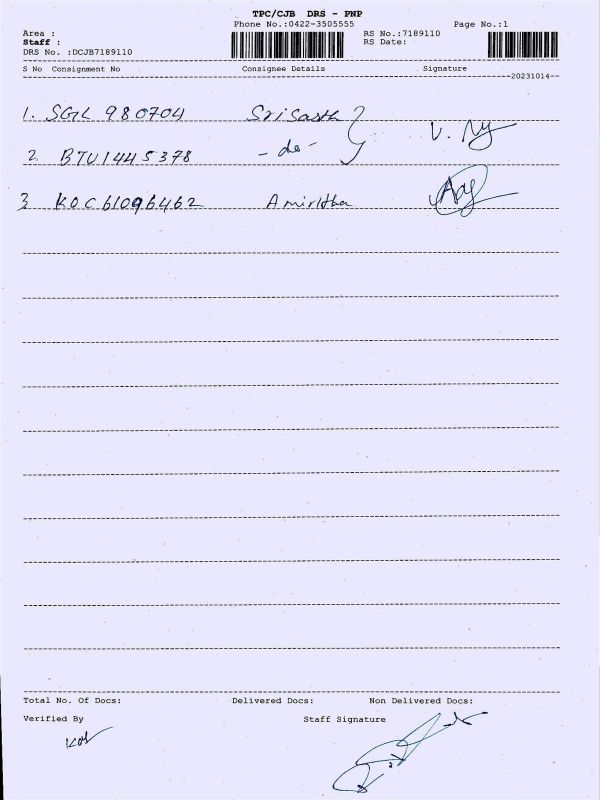 TPC/CJB DRS - PNP
Phone No.:0422-3505555 Page No.:1
Area : RS No.:7189110
Staff : RS Date:
DRS No. :DCJB7189110
S No Consignment No Consignee Details Signature
20231014
1. SGL 980704 Srisasth
2 BTU1445378 - do -
3 KOC61096462 Amirtha
Total No. Of Docs: Delivered Docs: Non Delivered Docs:
Verified By Staff Signature